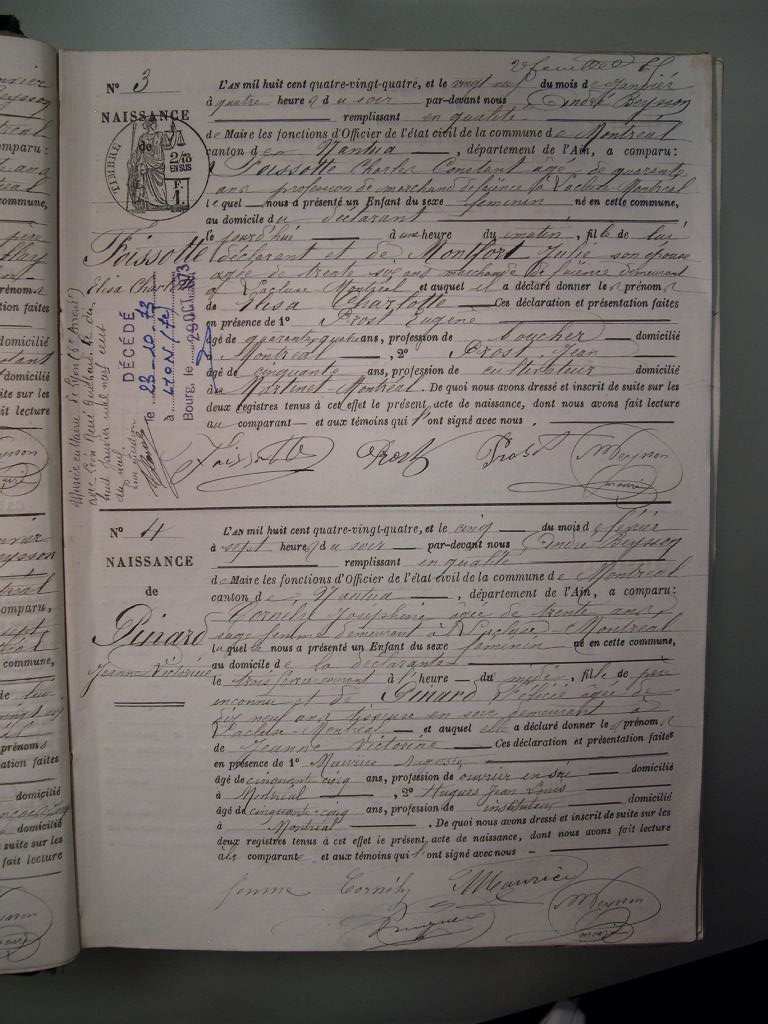 N° 3
NAISSANCE
de
TIMBRE
2/10
EN SUS
F.
1.
Foissotte
Elisa Charlotte
L'AN mil huit cent quatre-vingt-quatre, et le vingt neuf du mois de Janvier
à quatre heures du soir par-devant nous André Beysson
remplissant en qualité
de Maire les fonctions d'Officier de l'état civil de la commune de Montréal
canton de Nantua, département de l'Ain, a comparu:
Foissotte Charles Constant âgé de quarante
ans profession de marchand de faïence à Lacluse Montréal
lequel nous a présenté un Enfant du sexe féminin né en cette commune,
au domicile du déclarant
le jourd'hui à une heure du matin, fille de lui
déclarant et de Montfort Julie son épouse
agée de trente six ans marchande de faïence demeurant
à Lacluse Montréal et auquel il a déclaré donner les prénoms
de Elisa Charlotte Ces déclaration et présentation faites
en présence de 1° Prost Eugène
âgé de quarante quatre ans, profession de boucher domicilié
à Montréal, 2° Prost Jean
âgé de cinquante ans, profession de cultivateur domicilié
au Martinet Montréal. De quoi nous avons dressé et inscrit de suite sur les
deux registres tenus à cet effet le présent acte de naissance, dont nous avons fait lecture
au comparant et aux témoins qui ont signé avec nous.
Foissotte Prost Prost Meysson
DÉCÉDÉ
le 23-10-73
à LYON (7e)
Bourg, le 29 OCT. 1973
Mariée en Mairie de Lyon
avec
huit Janvier mil neuf cent
N° 4
NAISSANCE
de
Pinard
Jeanne Victorine
L'AN mil huit cent quatre-vingt-quatre, et le cinq du mois de février
à sept heures du soir par-devant nous André Beysson
remplissant en qualité
de Maire les fonctions d'Officier de l'état civil de la commune de Montréal
canton de Nantua, département de l'Ain, a comparu:
Cornély Joséphine agée de trente ans
sage femme demeurant à Lacluse Montréal
laquelle nous a présenté un Enfant du sexe féminin né en cette commune,
au domicile de la déclarante
le trois force courant à heure du, fille de père
inconnu et de Pinard agée de
dix neuf ans tisseuse en soie demeurant à
Lacluse Montréal et auquel elle a déclaré donner les prénoms
de Jeanne Victorine Ces déclaration et présentation faites
en présence de 1° Maurice
âgé de cinquante cinq ans, profession de ouvrier en soie domicilié
à Montréal, 2° Hugues Jean Louis
âgé de cinquante-cinq ans, profession de instituteur domicilié
à Montréal. De quoi nous avons dressé et inscrit de suite sur les
deux registres tenus à cet effet le présent acte de naissance, dont nous avons fait lecture
à la comparante et aux témoins qui ont signé avec nous
femme Cornély Maurice
Meysson